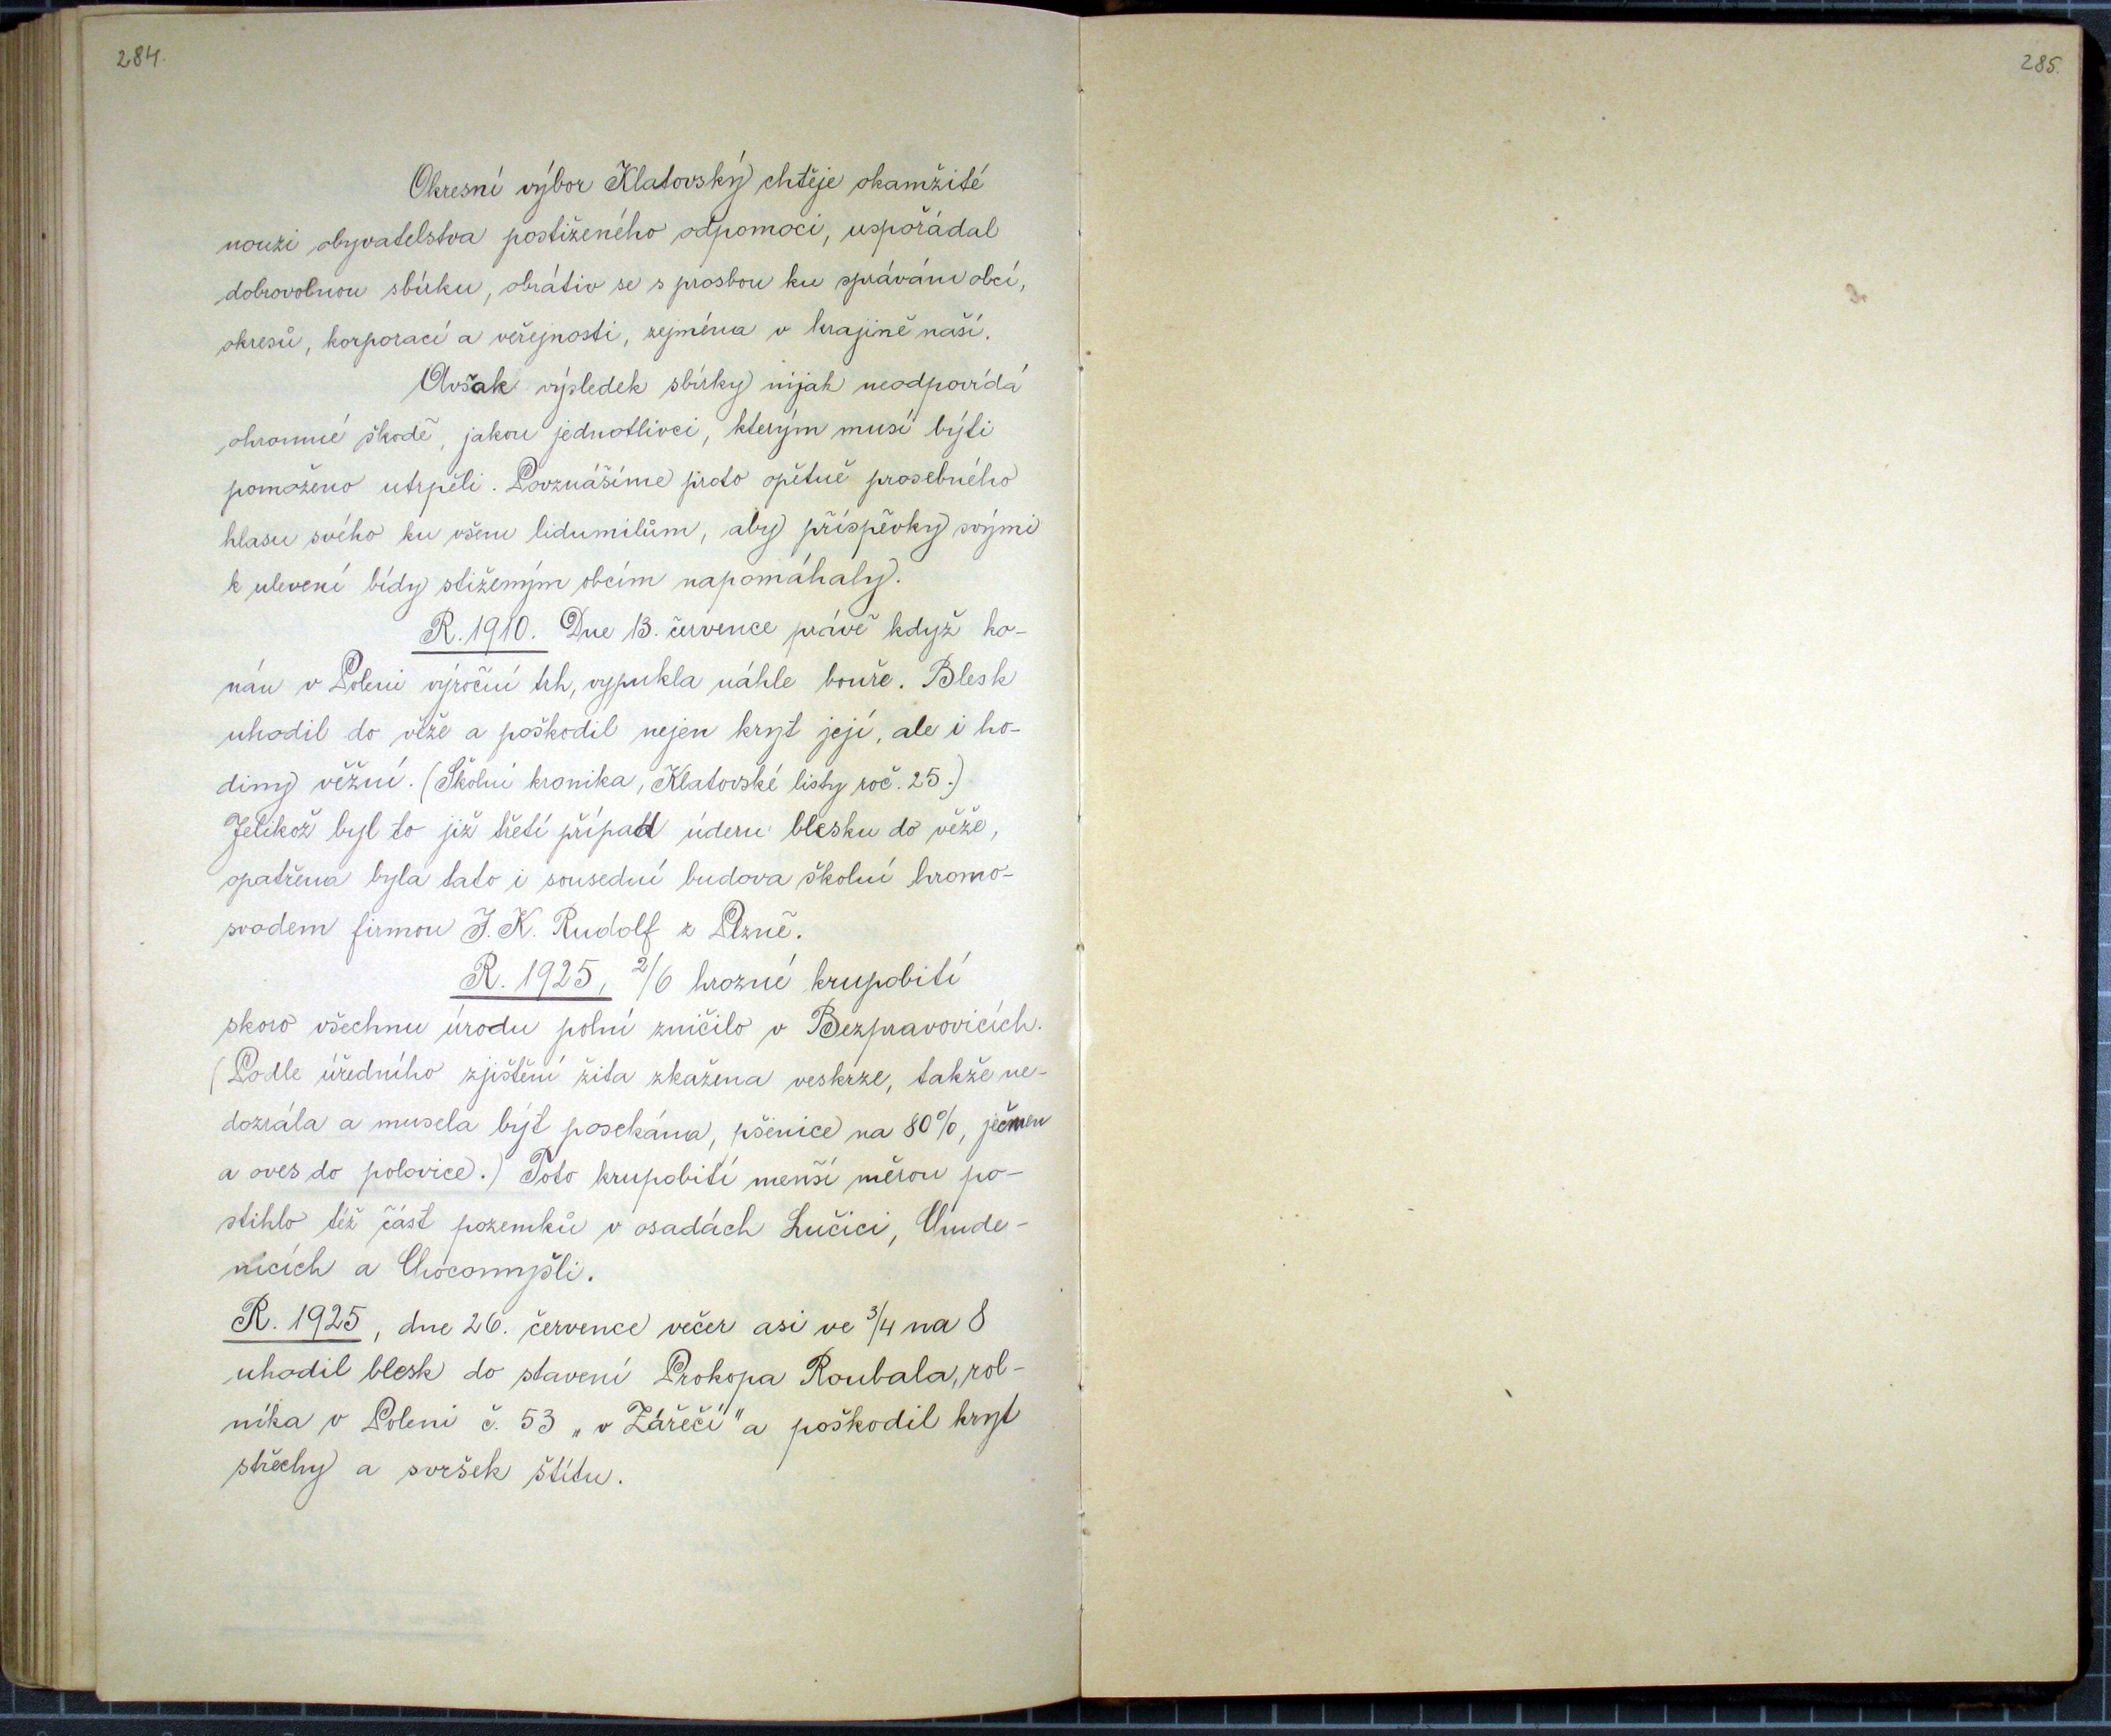 284.
Okresní výbor Klatovský chtěje okamžité
nouzi obyvatelstva postiženého odpomoci, uspořádal
dobrovolnou sbírku, obrátiv se s prosbou ku správám obcí,
okresů, korporací a veřejnosti, zejména v krajině naší.
Avšak výsledek sbírky nijak neodpovídá
ohromné škodě, jakou jednotlivci, kterým musí býti
pomoženo utrpěli. Povznášíme proto opětně prosebného
hlasu svého ku všem lidumilům, aby příspěvky svými
k ulevení bídy stiženým obcím napomáhaly.
R. 1910. Dne 13. července právě když ko-
nán v Poleni výroční trh, vypukla náhle bouře. Blesk
uhodil do věže a poškodil nejen kryt její, ale i ho-
diny věžní. (Školní kronika, Klatovské listy roč. 25.)
Jelikož byl to již třetí případ úderu blesku do věže,
opatřena byla tato i sousední budova školní hromo-
svodem firmou J. K. Rudolf z Plzně.
R. 1925, 2/6 hrozné krupobití
skoro všechnu úrodu polní zničilo v Bezpravovicích.
(Podle úředního zjištění žita zkažena veskrze, takže ne-
dozrála a musela být posekána, pšenice na 80%, ječmen
a oves do polovice.) Toto krupobití menší měrou po-
stihlo též část pozemků v osadách Lučici, Chude-
nicích a Chocomyšli.
R. 1925, dne 26. července večer asi ve 3/4 na 8
uhodil blesk do stavení Prokopa Roubala, rol-
níka v Poleni č. 53 „v Zářečí" a poškodil kryt
střechy a svršek štítu.
285.